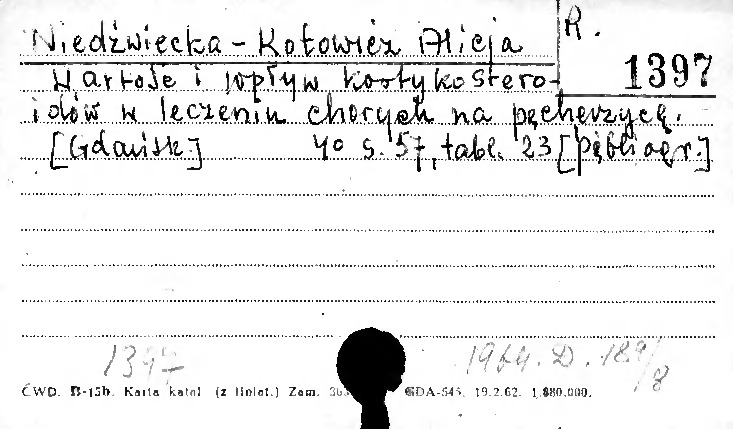 Niedźwiecka-Kołowicz Alicja
R. 1397
Wartość i wpływ kortykostero-
idów w leczeniu chorych na pęcherzycę.
[Gdańsk] 4° s. 57, tabl. 23 [bibliogr.]
1397
1964. D. 189/8
ĆWD. B-15b. Karta katal (z liniat.) Zam. GDA-545. 19.2.62. 1.880.000.